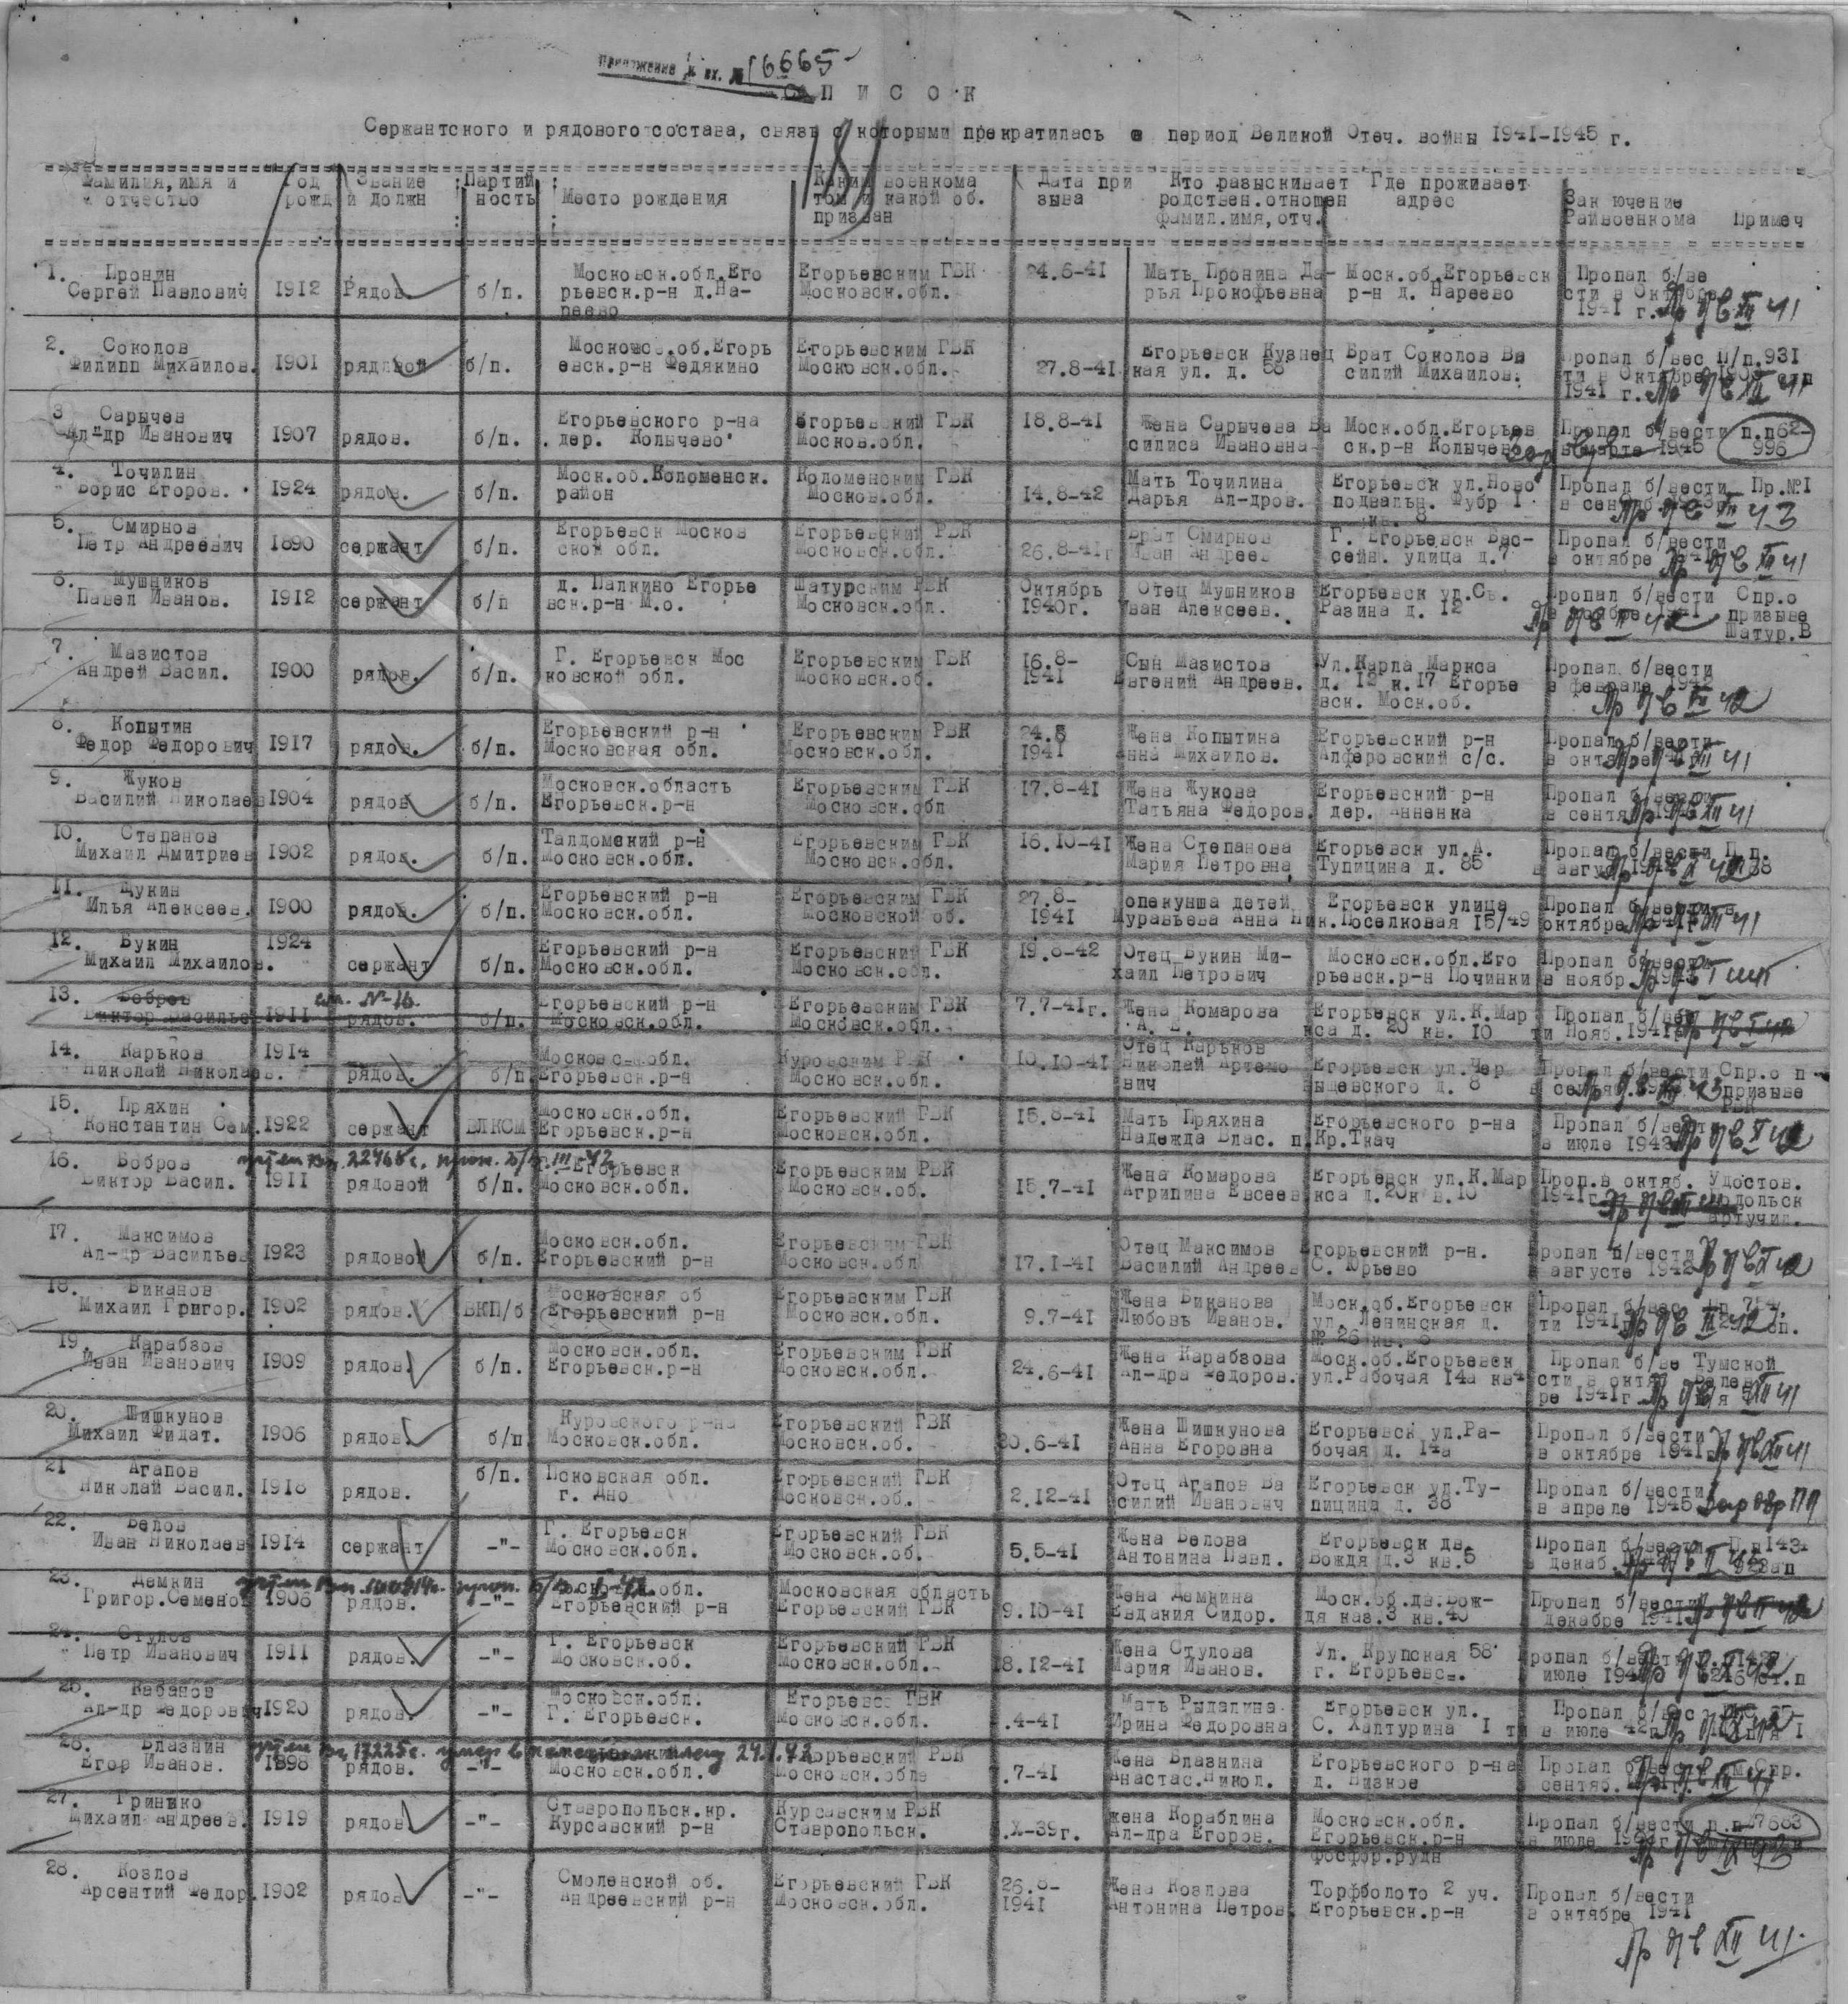 Приложение к вх. № 16665
СПИСОК
Сержантского и рядового состава, связь с которыми прекратилась в период Великой Отеч. войны 1941-1945 г.
181
Фамилия, имя и отчество Год рожд Звание и должн Партийность Место рождения Каким военкоматом и какой об. призван Дата призыва Кто разыскивает родствен.отношен фамил.имя, отч. Где проживает адрес Зак ючение Райвоенкома Примеч
1. Пронин Сергей Павлович 1912 Рядов. б/п. Московск.обл.Егорьевск.р-н д.Нареево Егорьевским ГВК Московск.обл. 24.6-41 Мать Пронина Дарья Прокофьевна Моск.об.Егорьевск р-н д. Нареево Пропал б/вести в Октябре 1941 г. Пр б/в XII 41
2. Соколов Филипп Михайлов. 1901 рядовой б/п. Московс.об.Егорьевск.р-н Федякино Егорьевским ГВК Московск.обл. 27.8-41 Егорьевск Кузнецкая ул. д. 58 Брат Соколов Василий Михайлов. Пропал б/вести в Октябре 1941 г. П/п.931 Пр б/в XII 41
3 Сарычев Ал-др Иванович 1907 рядов. б/п. Егорьевского р-на дер. Колычево Егорьевский ГВК Москов.обл. 18.8-41 Жена Сарычева Василиса Ивановна Моск.обл.Егорьевск.р-н Колычев Пропал б/вести в марте 1945 п.п62-996
4. Точилин Борис Егоров. 1924 рядов. б/п. Моск.об.Коломенск. район Коломенским ГВК Москов.обл. 14.8-42 Мать Точилина Дарья Ал-дров. Егорьевск ул.Ново подвальн. Фубр 1 кв. 8 Пропал б/вести Пр.№1 в сент Пр б/в XII 43
5. Смирнов Петр Андреевич 1890 сержант б/п. Егорьевск Московской обл. Егорьевский РВК Московск.обл. 26.8-41г Брат Смирнов Иван Андреев Г. Егорьевск Бассейн. улица д.7 Пропал б/вести в октябре Пр б/в XII 41
6. Мушников Павел Иванов. 1912 сержант б/п д. Палкино Егорьевск.р-н М.о. Шатурским РВК Московск.обл. Октябрь 1940г. Отец Мушников Иван Алексеев. Егорьевск ул.Ст. Разина д. 12 Пропал б/вести Спр.о призыве Шатур.В
7. Мазистов Андрей Васил. 1900 рядов. б/п. Г. Егорьевск Московской обл. Егорьевским ГВК Московск.об. 16.8-1941 Сын Мазистов Евгений Андреев. Ул.Карла Маркса д. 12 к.17 Егорьевск. Моск.об. Пропал б/вести в феврале 1942
8. Копытин Федор Федорович 1917 рядов. б/п. Егорьевский р-н Московская обл. Егорьевским РВК Московск.обл. 24.8 1941 Жена Копытина Анна Михайлов. Егорьевский р-н Алферовский с/с. Пропал б/вести в октябре Пр б/в XII 41
9. Жуков Василий Николаев 1904 рядов б/п. Московск.область Егорьевск.р-н Егорьевским ГВК Московск.обл 17.8-41 Жена Жукова Татьяна Федоров. Егорьевский р-н дер. Анненка Пропал б/вести в сентя Пр б/в XII 41
10. Степанов Михаил Дмитриев 1902 рядов. б/п. Талдомский р-н Московск.обл. Егорьевским ГВК Московск.обл. 16.10-41 Жена Степанова Мария Петровна Егорьевск ул.А. Тупицина д. 85 Пропал б/вести П.п. в авгус
11. Щукин Илья Алексеев. 1900 рядов. б/п. Егорьевский р-н Московск.обл. Егорьевским ГВК Московской об. 27.8-1941 опекунша детей Муравьева Анна Ник. Егорьевск улица Поселковая 15/49 Пропал б/вести в октябре Пр б/в XII 41
12. Букин Михаил Михайлов. 1924 сержант б/п. Егорьевский р-н Московск.обл. Егорьевский ГВК Московск.обл. 19.8-42 Отец Букин Михаил Петрович Московск.обл.Егорьевск.р-н Починки Пропал б/вести в ноябр
13. Бобров Виктор Василье 1911 см. №16. рядов. б/п. Егорьевский р-н Московск.обл. Егорьевским ГВК Московск.обл. 7.7-41г. Жена Комарова А. Е. Егорьевск ул.К.Маркса д. 20 кв. 10 Пропал б/вести Нояб.1941
14. Карьков Николай Николаев. 1914 рядов. б/п Московс обл. Егорьевск.р-н Куровским РВК Московск.обл. 10.10-41 Отец Карьков Николай Артемович Егорьевск ул.Чернышевского д. 8 Пропал б/вести Спр.о призыве РВК
15. Пряхин Константин Сем. 1922 сержант ВЛКСМ Московск.обл. Егорьевск.р-н Егорьевский ГВК Московск.обл. 15.8-41 Мать Пряхина Надежда Влас. Егорьевского р-на п.Кр.Ткач Пропал б/вести в июле 1943
16. Бобров Виктор Васил. 1911 рядовой б/п. Г. Егорьевск Московск.обл. Егорьевским РВК Московск.об. 15.7-41 Жена Комарова Агрипина Евсеев Егорьевск ул.К.Маркса д.20к в.10 Проп.в октяб. 1941г Удостов. Подольск артучил.
17. Максимов Ал-др Васильев 1923 рядовой б/п. Московск.обл. Егорьевский р-н Егорьевским ГВК Московск.обл 17.1-41 Отец Максимов Василий Андреев Егорьевский р-н. С. Юрьево Пропал б/вести в августе 1942
18. Биканов Михаил Григор. 1902 рядов. ВКП/б Московская об Егорьевский р-н Егорьевским ГВК Московск.обл. 9.7-41 Жена Биканова Любовь Иванов. Моск.об.Егорьевск ул. Ленинская д. № 26 кв. 8 Пропал б/вести 1941
19. Карабзов Иван Иванович 1909 рядов. б/п. Московск.обл. Егорьевск.р-н Егорьевским ГВК Московск.обл. 24.6-41 Жена Карабзова Ал-дра Федоров. Моск.об.Егорьевск ул.Рабочая 14а кв4 Пропал б/вести в октябре 1941г. Тумской
20. Шишкунов Михаил Филат. 1906 рядов. б/п Куровского р-на Московск.обл. Егорьевский ГВК Московск.об. 30.6-41 Жена Шишкунова Анна Егоровна Егорьевск ул.Рабочая д. 14а Пропал б/вести в октябре 1941г Пр б/в XII 41
21 Агапов Николай Васил. 1918 рядов. б/п. Псковская обл. г. Дно Егорьевский ГВК Московск.об. 2.12-41 Отец Агапов Василий Иванович Егорьевск ул.Тупицина д. 38 Пропал б/вести в апреле 1945
22. Белов Иван Николаев 1914 сержант -"- Г. Егорьевск Московск.обл. Егорьевский ГВК Московск.об. 5.5-41 Жена Белова Антонина Павл. Егорьевск дв. Вождя д.3 кв.5 Пропал б/вести в декаб.
23. Демкин Григор.Семенов 1908 рядов. -"- Московск.обл. Егорьевский р-н Московская область Егорьевский ГВК 9.10-41 Жена Демкина Евдакия Сидор. Моск.об.дв.Вождя каз.3 кв.40 Пропал б/вести декабре 1941
24. Стулов Петр Иванович 1911 рядов. -"- Г. Егорьевск Московск.об. Егорьевский РВК Московск.обл. 8.12-41 Жена Стулова Мария Иванов. Ул. Крупская 58 г. Егорьевск. Пропал б/вести июле
25. Кабанов Ал-др Федорович 1920 рядов. -"- Московск.обл. Г. Егорьевск. Егорьевс ГВК Московск.обл. .4-41 Мать Рыдалина Ирина Федоровна Егорьевск ул. С. Халтурина 1 Пропал б/вести в июле 42
26. Влазнин Егор Иванов. 1898 рядов. -"- Московск.обл. Егорьевский РВК Московск.обл .7-41 Жена Влазнина Анастас.Никол. Егорьевского р-на д. Низкое Пропал б/вести сентяб.
27. Гринько Михаил Андреев. 1919 рядов -"- Ставропольск.кр. Курсавский р-н Курсавским РВК Ставропольск. .X-39г. жена Кораблина Ал-дра Егоров. Московск.обл. Егорьевск.р-н фосфор.рудн Пропал б/вести в июле п.п27883
28. Козлов Арсентий Федор. 1902 рядов -"- Смоленской об. Андреевский р-н Егорьевский ГВК Московск.обл. 26.8-1941 Жена Козлова Антонина Петров Торфболото 2 уч. Егорьевск.р-н Пропал б/вести в октябре 1941
Пр б/в XII 41.